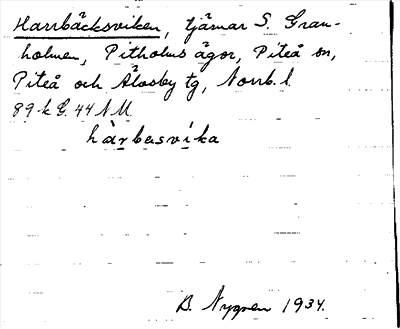 Harrbäcksviken, tjärnar S. Gran-
holmen, Pitholms ägor, Piteå sn,
Piteå och Älvsby tg, Norrb. l.
89-k G. 44 N M.
hàrbasvika
B. Nygren 1934.